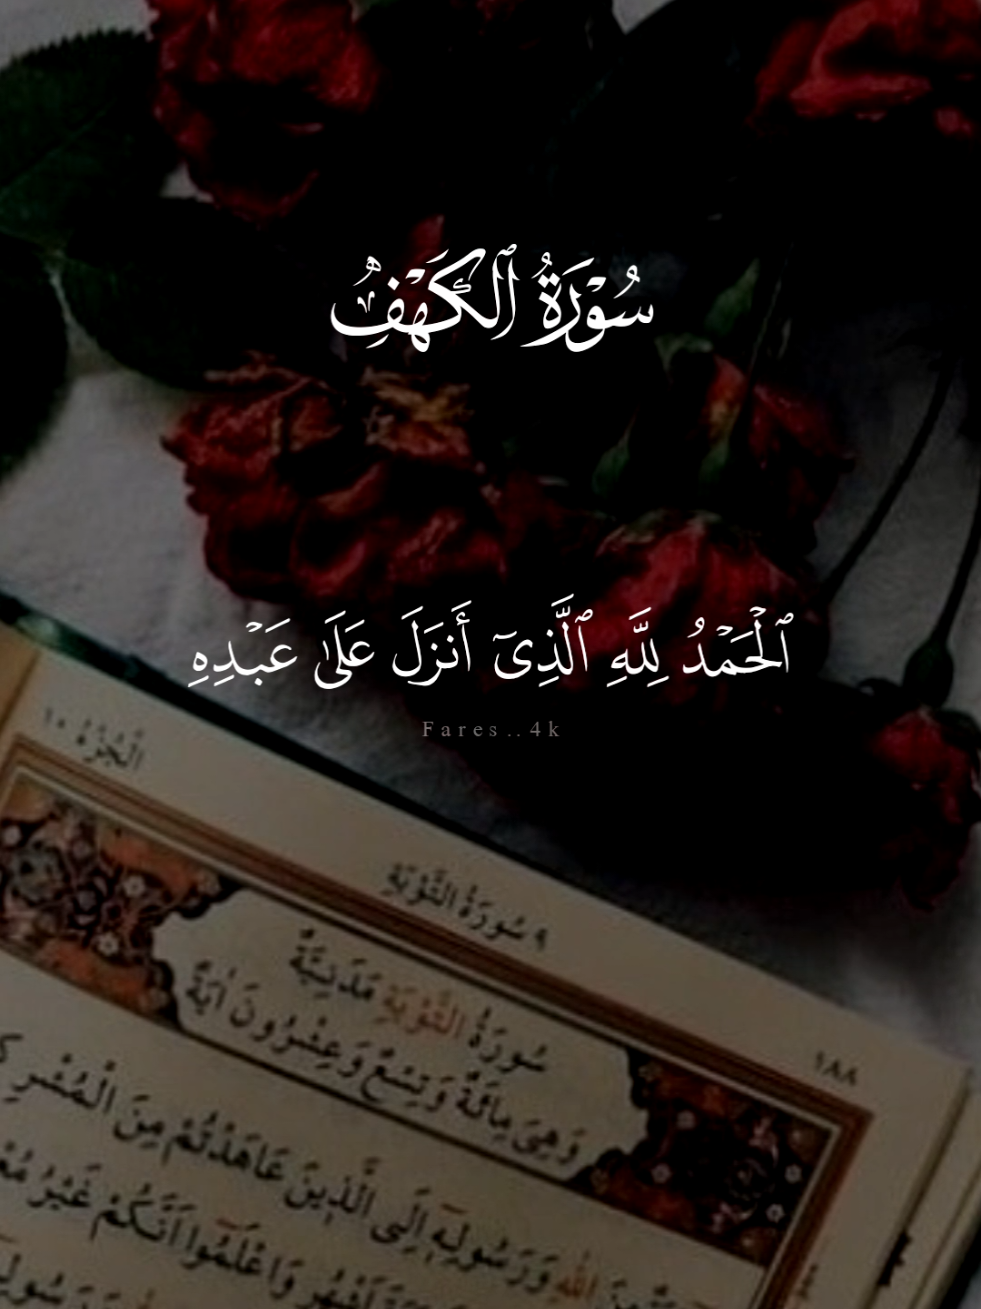 سُوْرَةُ ٱلْكَهْفِ
ٱلْحَمْدُ لِلَّهِ ٱلَّذِىٓ أَنزَلَ عَلَىٰ عَبْدِهِ
Fares..4k
اَلْجُزْءُ ١٠
٩ سُورَةُ التَّوْبَةِ
١٨٨
سُورَةُ التَّوْبَةِ مَدَنِيَّةٌ
وَهِيَ مِائَةٌ وَتِسْعٌ وَعِشْرُونَ اٰيَةً
اللّٰهِ وَرَسُولِهٖٓ اِلَى الَّذٖينَ عَاهَدْتُمْ مِنَ الْمُشْرِ
وَاعْلَمُٓوا اَنَّكُمْ غَيْرُ